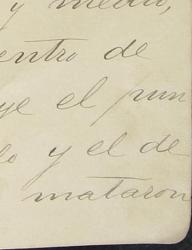 y medio,
entro de
ye el run
lo y el de
mataron